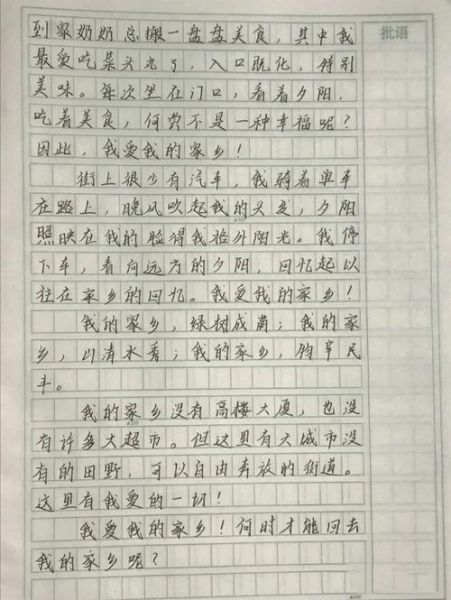 到家奶奶总搬一盘盘美食，其中我
批语
最爱吃菜头壳了，入口既化，特别
美味。每次坐在门口，看着夕阳，
吃着美食，何尝不是一种幸福呢？
因此，我爱我的家乡！
街上很少有汽车，我骑着单车
在路上，晚风吹起我的头发，夕阳
照映在我的脸得我格外阳光。我停
下车，看向远方的夕阳，回忆起以
往在家乡的回忆。我爱我的家乡！
我的家乡，绿树成荫；我的家
乡，山清水秀；我的家乡，物阜民
丰。
我的家乡没有高楼大厦，也没
有许多大超市。但这里有大城市没
有的田野，可以自由奔放的街道。
这里有我爱的一切！
我爱我的家乡！何时才能回去
我的家乡呢？